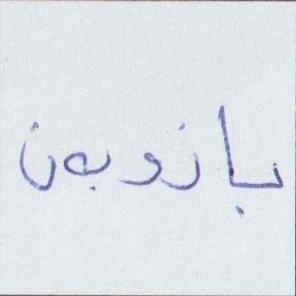 بازوبهن